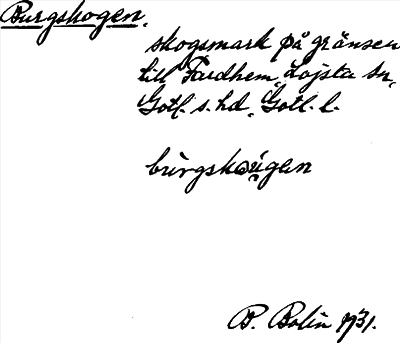 Burgskogen.
skogsmark på gränsen
till Fardhem, Lojsta sn,
Gotl. s. hd, Gotl. l.
bùrgskǫu̯gen
B. Bolin 1931.